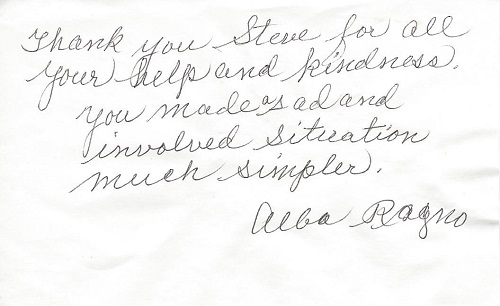 Thank you Steve for all
your help and kindness.
You made a sad and
involved situation
much simpler.
Alba Ragno